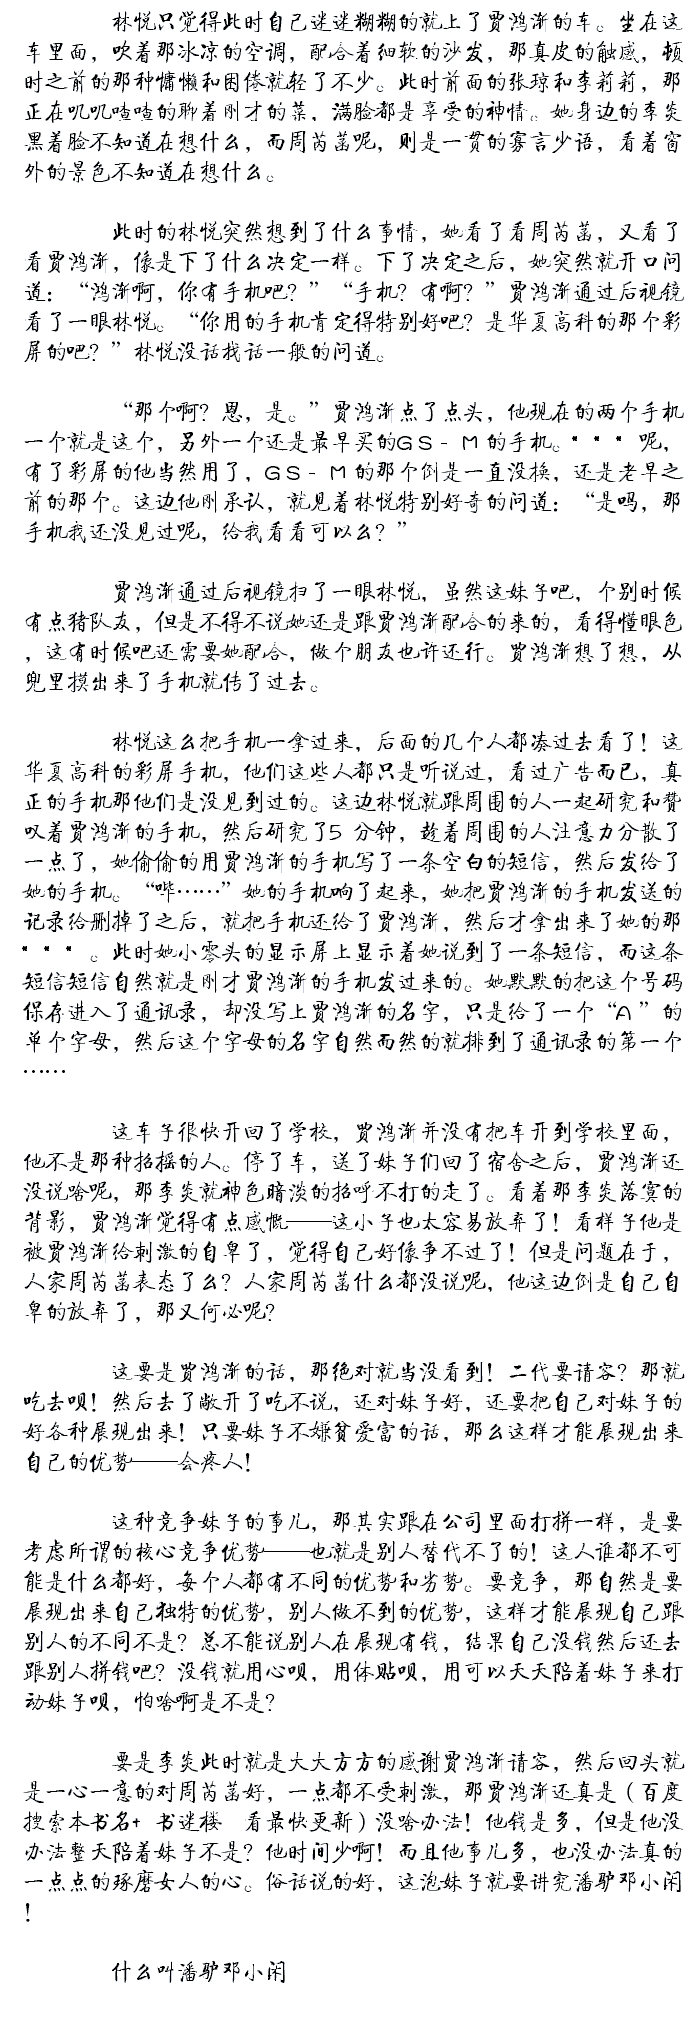 林悦只觉得此时自己迷迷糊糊的就上了贾鸿渐的车。坐在这
车里面，吹着那冰凉的空调，配合着细软的沙发，那真皮的触感，顿
时之前的那种慵懒和困倦就轻了不少。此时前面的张琼和李莉莉，那
正在叽叽喳喳的聊着刚才的菜，满脸都是享受的神情。她身边的李炎
黑着脸不知道在想什么，而周芮菡呢，则是一贯的寡言少语，看着窗
外的景色不知道在想什么。
此时的林悦突然想到了什么事情，她看了看周芮菡，又看了
看贾鸿渐，像是下了什么决定一样。下了决定之后，她突然就开口问
道：“鸿渐啊，你有手机吧？”“手机？有啊？”贾鸿渐通过后视镜
看了一眼林悦。“你用的手机肯定得特别好吧？是华夏高科的那个彩
屏的吧？”林悦没话找话一般的问道。
“那个啊？恩，是。”贾鸿渐点了点头，他现在的两个手机
一个就是这个，另外一个还是最早买的GS-M的手机。***呢，
有了彩屏的他当然用了，GS-M的那个倒是一直没换，还是老早之
前的那个。这边他刚承认，就见着林悦特别好奇的问道：“是吗，那
手机我还没见过呢，给我看看可以么？”
贾鸿渐通过后视镜扫了一眼林悦，虽然这妹子吧，个别时候
有点猪队友，但是不得不说她还是跟贾鸿渐配合的来的，看得懂眼色
，这有时候吧还需要她配合，做个朋友也许还行。贾鸿渐想了想，从
兜里摸出来了手机就传了过去。
林悦这么把手机一拿过来，后面的几个人都凑过去看了！这
华夏高科的彩屏手机，他们这些人都只是听说过，看过广告而已，真
正的手机那他们是没见到过的。这边林悦就跟周围的人一起研究和赞
叹着贾鸿渐的手机，然后研究了5分钟，趁着周围的人注意力分散了
一点了，她偷偷的用贾鸿渐的手机写了一条空白的短信，然后发给了
她的手机。“哔……”她的手机响了起来，她把贾鸿渐的手机发送的
记录给删掉了之后，就把手机还给了贾鸿渐，然后才拿出来了她的那
***。此时她小零头的显示屏上显示着她说到了一条短信，而这条
短信短信自然就是刚才贾鸿渐的手机发过来的。她默默的把这个号码
保存进入了通讯录，却没写上贾鸿渐的名字，只是给了一个“A”的
单个字母，然后这个字母的名字自然而然的就排到了通讯录的第一个
……
这车子很快开回了学校，贾鸿渐并没有把车开到学校里面，
他不是那种招摇的人。停了车，送了妹子们回了宿舍之后，贾鸿渐还
没说啥呢，那李炎就神色暗淡的招呼不打的走了。看着那李炎落寞的
背影，贾鸿渐觉得有点感慨——这小子也太容易放弃了！看样子他是
被贾鸿渐给刺激的自卑了，觉得自己好像争不过了！但是问题在于，
人家周芮菡表态了么？人家周芮菡什么都没说呢，他这边倒是自己自
卑的放弃了，那又何必呢？
这要是贾鸿渐的话，那绝对就当没看到！二代要请客？那就
吃去呗！然后去了敞开了吃不说，还对妹子好，还要把自己对妹子的
好各种展现出来！只要妹子不嫌贫爱富的话，那么这样才能展现出来
自己的优势——会疼人！
这种竞争妹子的事儿，那其实跟在公司里面打拼一样，是要
考虑所谓的核心竞争优势——也就是别人替代不了的！这人谁都不可
能是什么都好，每个人都有不同的优势和劣势。要竞争，那自然是要
展现出来自己独特的优势，别人做不到的优势，这样才能展现自己跟
别人的不同不是？总不能说别人在展现有钱，结果自己没钱然后还去
跟别人拼钱吧？没钱就用心呗，用体贴呗，用可以天天陪着妹子来打
动妹子呗，怕啥啊是不是？
要是李炎此时就是大大方方的感谢贾鸿渐请客，然后回头就
是一心一意的对周芮菡好，一点都不受刺激，那贾鸿渐还真是（百度
搜索本书名+ 书迷楼 看最快更新）没啥办法！他钱是多，但是他没
办法整天陪着妹子不是？他时间少啊！而且他事儿多，也没办法真的
一点点的琢磨女人的心。俗话说的好，这泡妹子就要讲究潘驴邓小闲
！
什么叫潘驴邓小闲